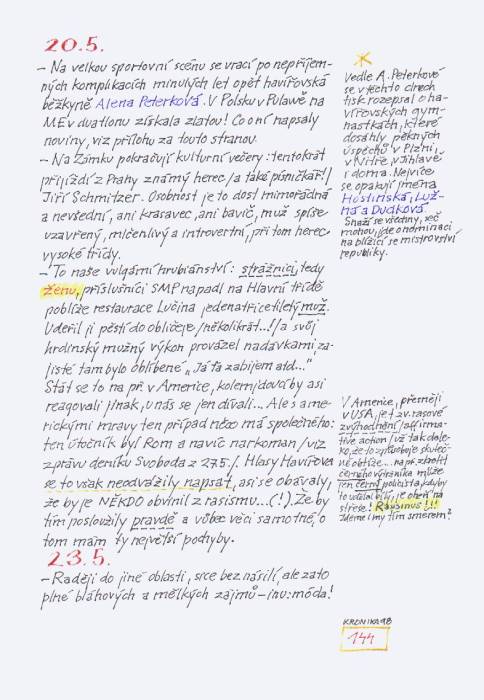 20.5.
– Na velkou sportovní scénu se vrací po nepříjem-
ných komplikacích minulých let opět havířovská
běžkyně Alena Peterková. V Polsku v Pulawě na
ME v duatlonu získala zlatou! Co o ní napsaly
noviny, viz přílohu za touto stranou.
– Na Zámku pokračují kulturní večery: tentokrát
přijíždí z Prahy známý herec /a také písničkář!/
Jiří Schmitzer. Osobnost je to dost mimořádná
a nevšední, ani krasavec, ani bavič, muž spíše
uzavřený, mlčenlivý a introvertní, při tom herec
vysoké třídy.
– To naše vulgární hrubiánství: strážnici, tedy
ženu, příslušnici SMP napadl na Hlavní třídě
poblíže restaurace Lučina jedenatřicetiletý muž.
Udeřil ji pěstí do obličeje /několikrát...!/ a svůj
hrdinský mužný výkon provázel nadávkami, za-
jisté tam bylo oblíbené „Já ťa zabijem atd...“
Stát se to na př. v Americe, kolemjdoucí by asi
reagovali jinak, u nás se jen dívali... Ale s ame-
rickými mravy ten případ něco má společného:
ten útočník byl Rom a navíc narkoman /viz
zprávu deníku Svoboda z 27.5./. Hlasy Havířova
se to však neodvážily napsat, asi se obávaly,
že by je NĚKDO obvinil z rasismu...(!). Že by
tím posloužily pravdě a vůbec věci samotné, o
tom mám ty největší pochyby.
23.5.
– Raději do jiné oblasti, sice bez násilí, ale zato
plné bláhových a mělkých zájmů – inu: móda!
Vedle A. Peterkové
se v těchto dnech
tisk rozepsal o ha-
vířovských gym-
nastkách, které
dosáhly pěkných
úspěchů v Plzni,
v Nitře, v Jihlavě
i doma. Nejvíce
se opakují jména
Hostinská, Luž-
ná a Dudková
Snaží se všechny, seč
mohou, jde o nominaci
na blížící se mistrovství
republiky.
V Americe, přesněji
v USA, je t. zv. rasové
zvýhodnění /affirma-
tive action/ už tak dale-
ko, že to způsobuje skuteč-
né obtíže... např. zbatil
černého výtržníka může
jen černý policista, kdyby
to udělal bílý, je oheň na
střeše! Rasismus!!!
Jdeme i my tím směrem?
KRONIKA 98
144